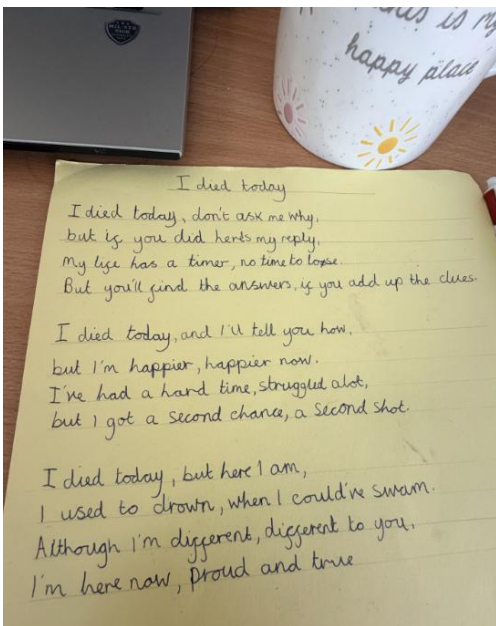 MIL-STD
810H
is my
happy place
I died today
I died today, don't ask me why,
but if you did herts my reply,
My life has a timer, no time to loose.
But you'll find the answers, if you add up the clues.
I died today, and I'll tell you how,
but I'm happier, happier now.
I've had a hard time, struggled alot,
but I got a second chance, a second shot.
I died today, but here I am,
I used to drown, when I could've swam.
Although I'm different, different to you,
I'm here now, proud and true